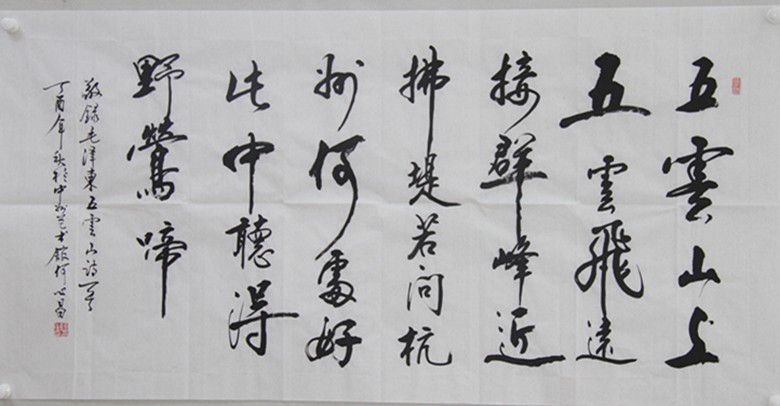 五雲山上
五雲飛遠
接群峰近
拂堤若問杭
州何處好
此中聽得
野鶯啼
敬錄毛澤東五雲山詩一首
丁酉年秋於中州艺术館何心易